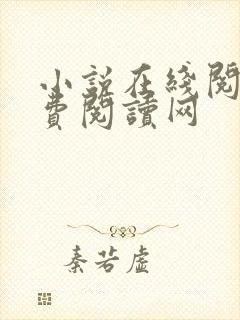 小説在綫閱
費閱讀网
秦若虛